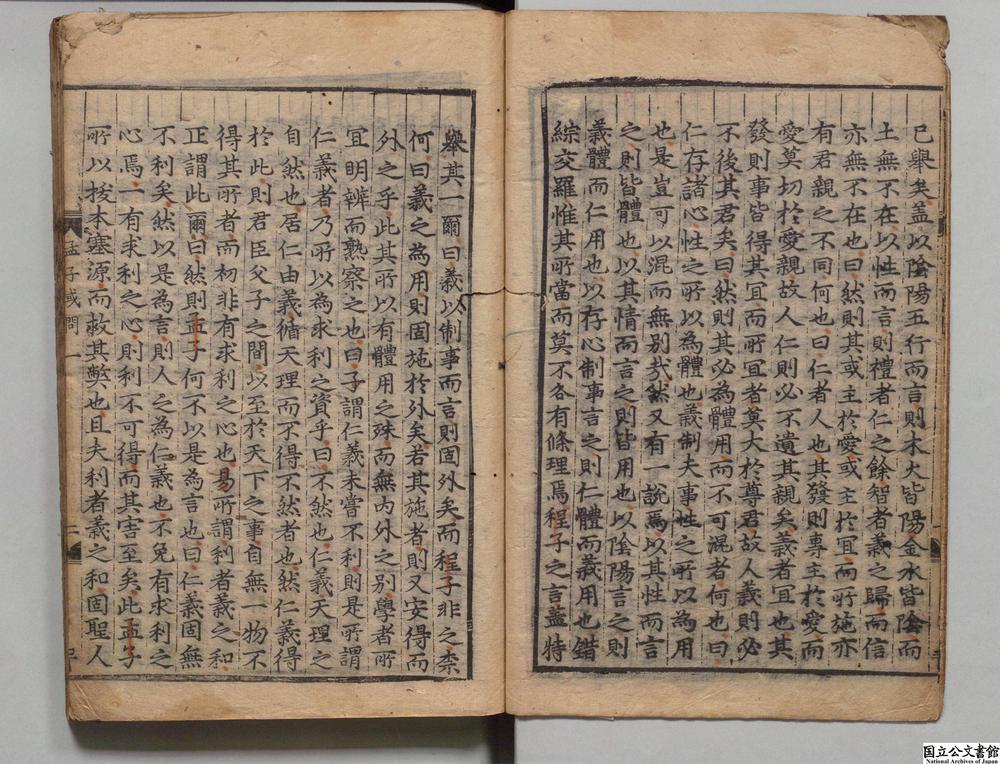 已舉矣盖以陰陽五行而言則木火皆陽金水皆陰而
土無不在以性而言則禮者仁之餘智者義之歸而信
亦無不在也曰然則其或主於愛或主於宜而所施亦
有君親之不同何也曰仁者人也其發則專主於愛而
愛莫切於愛親故人仁則必不遺其親矣義者宜也其
發則事皆得其宜而所宜者莫大於尊君故人義則必
不後其君矣曰然則其必為體用而不可混者何也曰
仁存諸心性之所以為體也義制夫事性之所以為用
也是豈可以混而無别㢤然又有一說焉以其性而言
之則皆體也以其情而言之則皆用也以陰陽言之則
義體而仁用也以存心制事言之則仁體而義用也錯
綜交羅惟其所當而莫不各有條理焉程子之言盖特
舉其一爾曰義以制事而言則固外矣而程子非之柰
何曰義之為用則固施於外矣若其施者則又安得而
外之乎此其所以有體用之殊而無内外之别學者所
宜明辨而熟察之也曰子謂仁義未嘗不利則是所謂
仁義者乃所以為求利之資乎曰不然也仁義天理之
自然也居仁由義循天理而不得不然者也然仁義得
於此則君臣父子之間以至於天下之事自無一物不
得其所者而初非有求利之心也易所謂利者義之和
正謂此爾曰然則孟子何不以是為言也曰仁義固無
不利矣然以是為言則人之為仁義也不免有求利之
心焉一有求利之心則利不可得而其害至矣此孟子
所以拔本塞源而救其獘也且夫利者義之和固聖人
孟子或問一
国立公文書館
National Archives of Japan